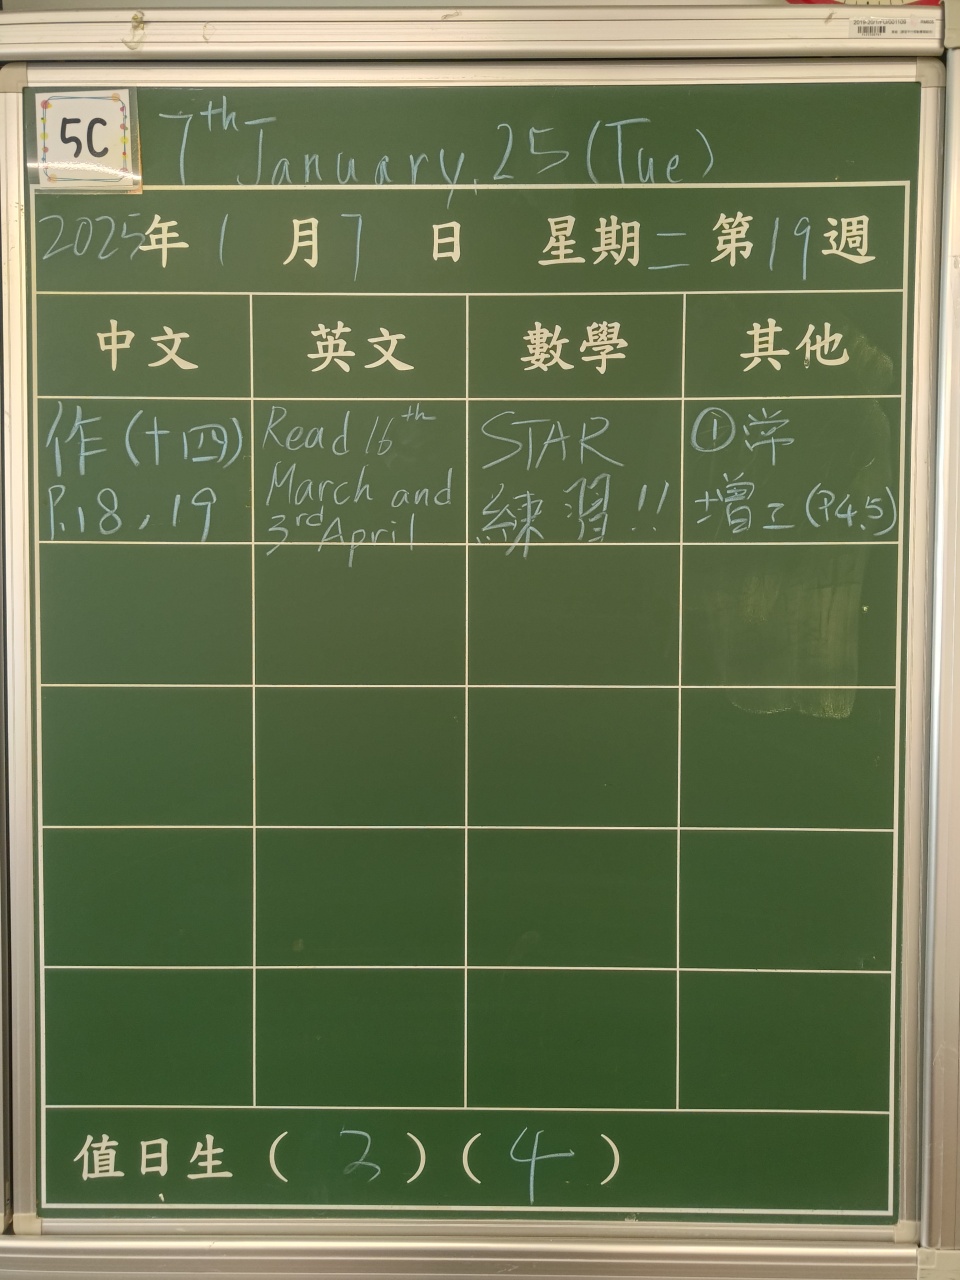 5C
7th January, 25 (Tue)
2025年1月7日 星期二 第19週
中文
英文
數學
其他
作(十四)
P.18, 19
Read 16th
March and
3rd April
STAR
練習!!
①常
增工(P4.5)
值日生( 3 )( 4 )